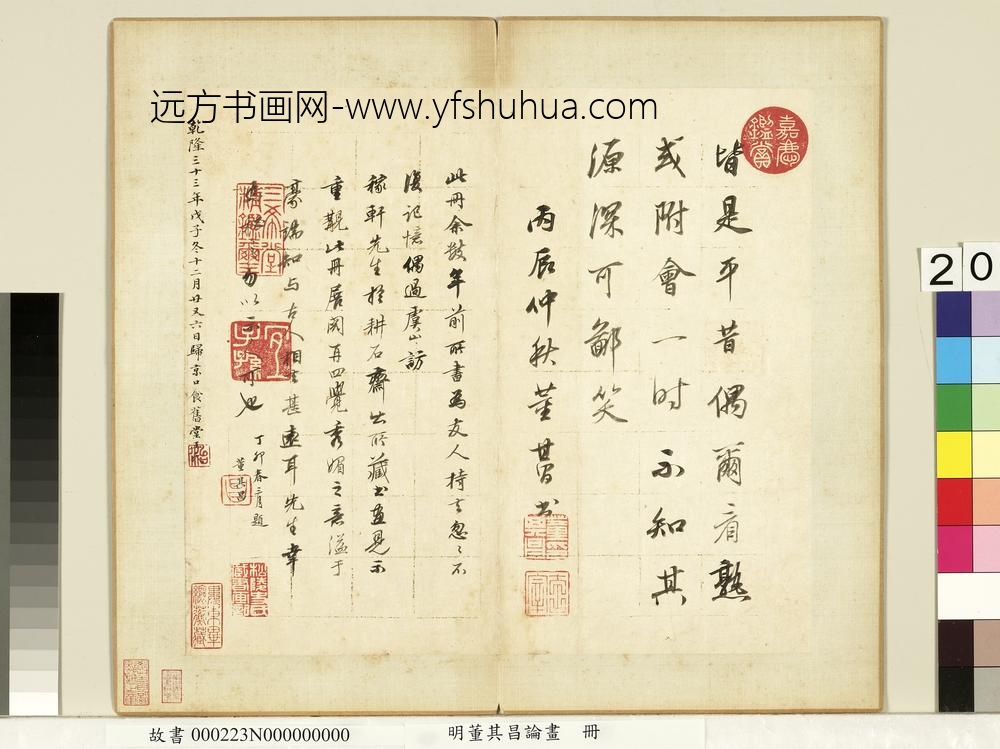 远方书画网-www.yfshuhua.com
嘉慶鑑賞
皆是平昔偶爾看熟
或附會一時不知其
源深可鄙笑
丙辰仲秋董其昌書
此冊余數年前所書為友人持去忽忽不
復記憶偶過虞山訪
稼軒先生於耕石齋出所藏書畫見示
重觀此冊展閱再四覺秀媚之意溢于
豪端知与古人相去甚遠耳先生幸
勿以示也
丁卯春三月題
董其昌
乾隆三十三年戊子冬十二月廿又六日歸京口食舊堂
20
故書 000223N000000000
明董其昌論畫 冊